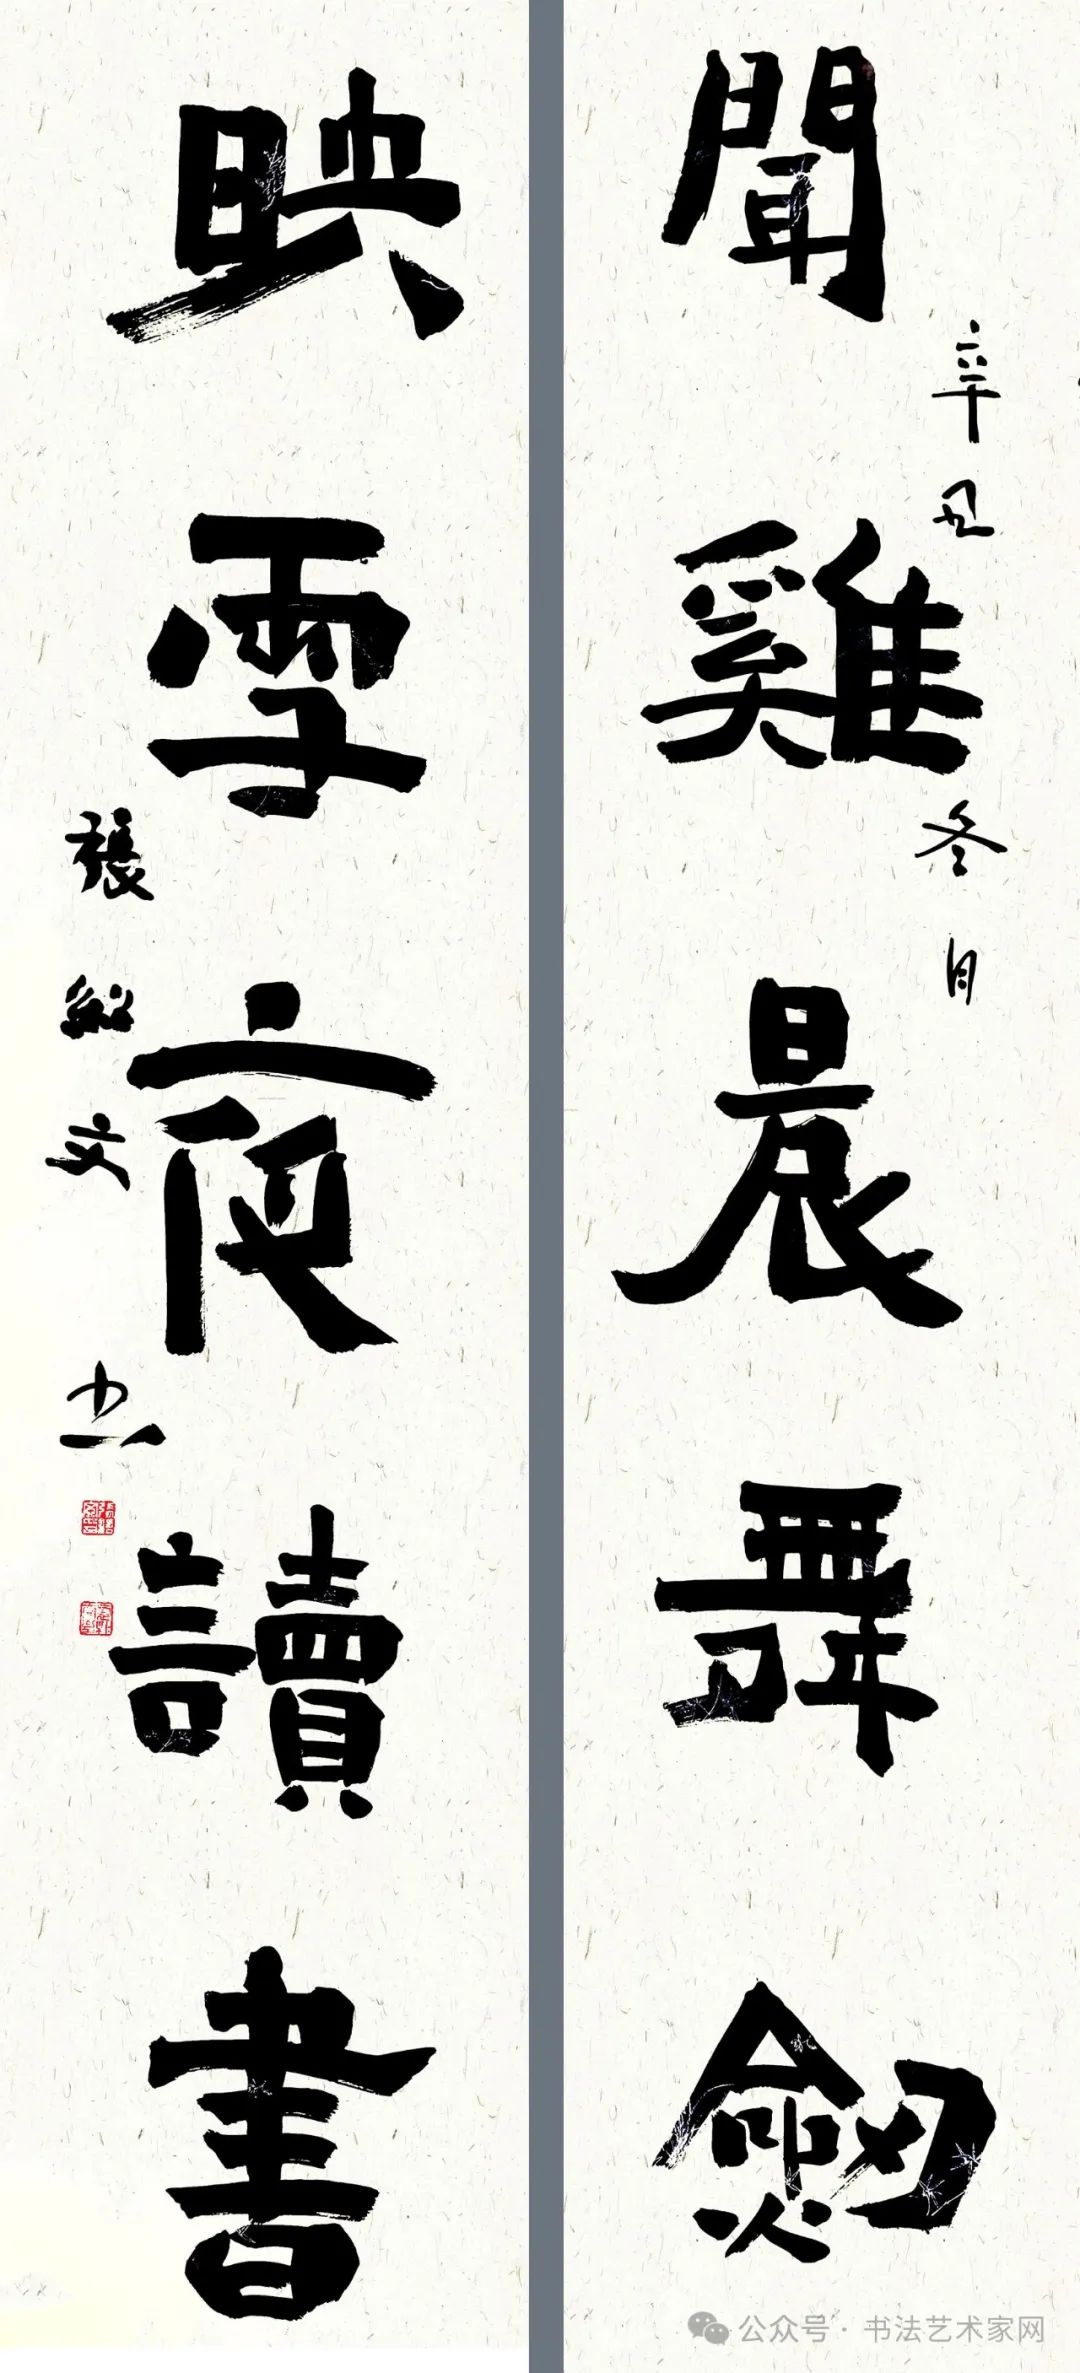 聞雞晨舞劍
辛丑冬月
映雪夜讀書
張紹文書
公众号·书法艺术家网